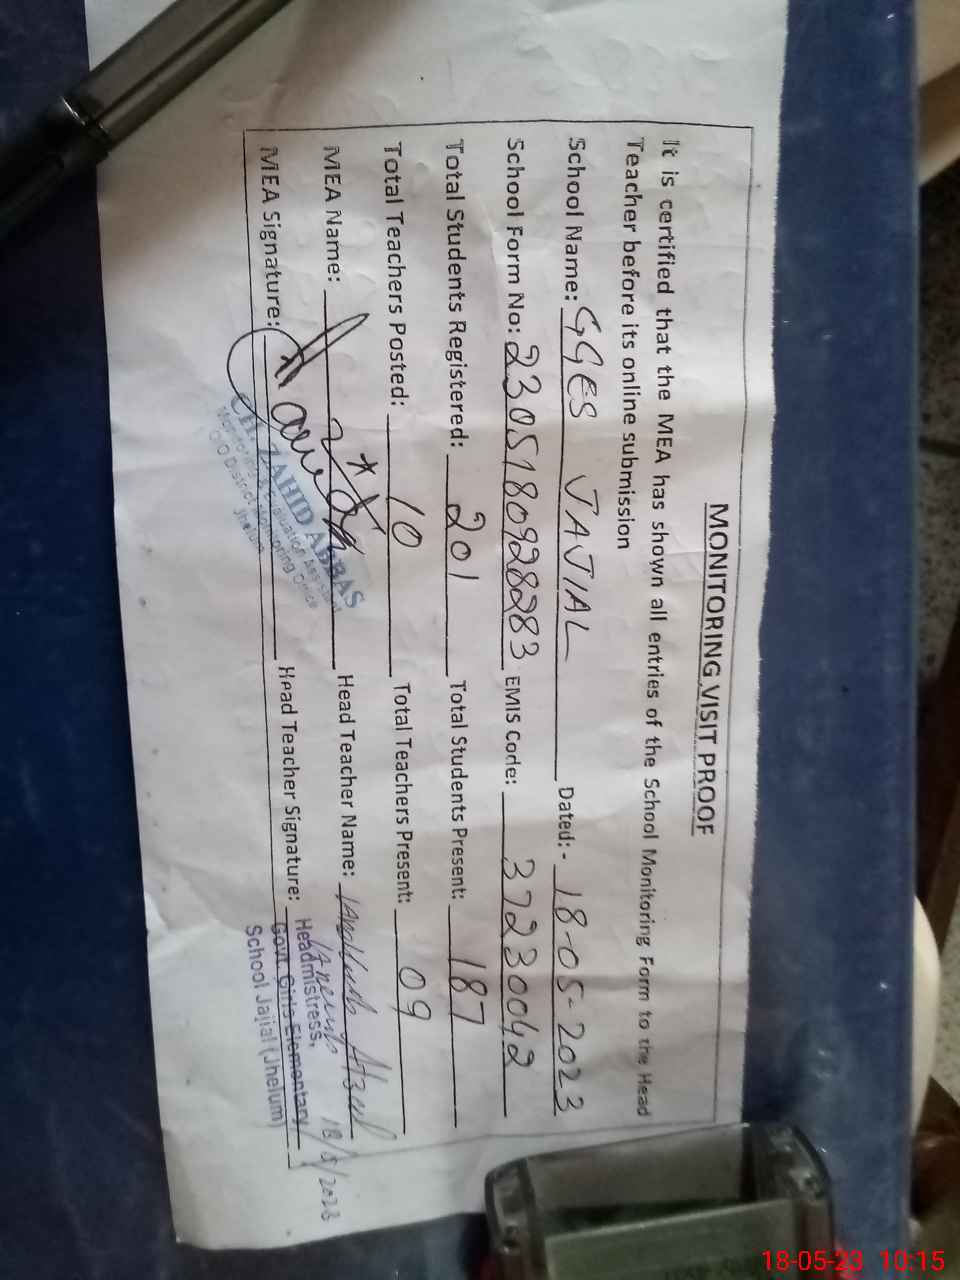 MONITORING VISIT PROOF
It is certified that the MEA has shown all entries of the School Monitoring Form to the Head
Teacher before its online submission
School Name: GGES JAJIAL Dated:- 18-05-2023
School Form No: 2305180928283 EMIS Code: 37230042
Total Students Registered: 201 Total Students Present: 187
Total Teachers Posted: 10 Total Teachers Present: 09
MEA Name: Head Teacher Name:
MEA Signature: Head Teacher Signature:
ZAHID ABBAS
Monitoring & Evaluation Assistant
O/O District Monitoring Office
Jhelum
18/5/2023
Headmistress,
Govt. Girls Elementary
School Jajial (Jhelum)
18-05-23 10:15